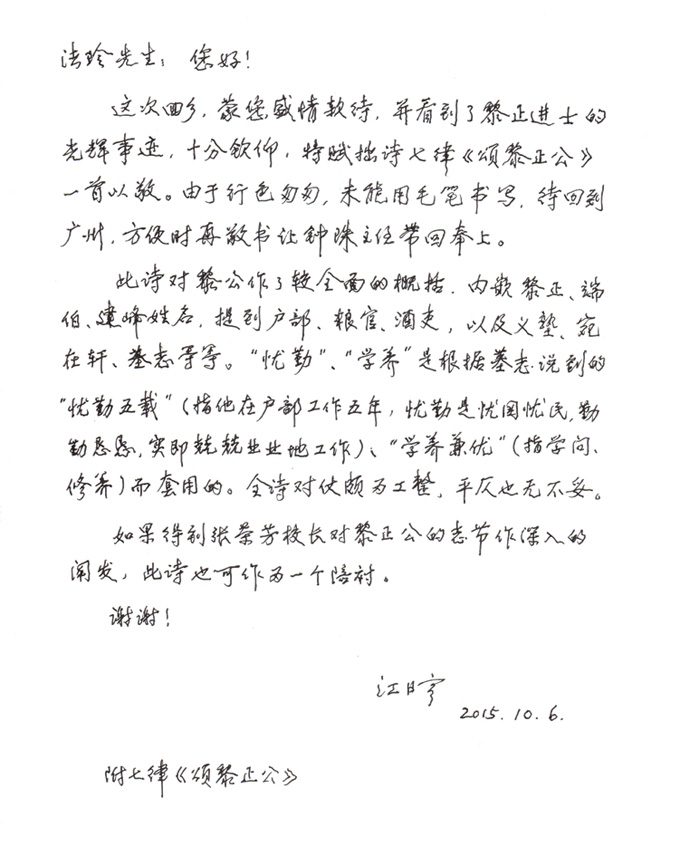 法玲先生：您好！
这次回乡，蒙您盛情款待，并看到了黎正进士的
光辉事迹，十分钦仰，特赋拙诗七律《颂黎正公》
一首以敬。由于行色匆匆，未能用毛笔书写，待回到
广州，方便时再敬书让钟珠主任带回奉上。
此诗对黎公作了较全面的概括，内嵌黎正、端
伯、建峰姓名，提到户部、粮官、酒吏，以及义塾、宛
在轩、墓志等等。“忧勤”、“学养”是根据墓志说到的
“忧勤五载”（指他在户部工作五年，忧勤是忧国忧民，勤
勤恳恳，实即兢兢业业地工作）、“学养兼优”（指学问、
修养）而套用的。全诗对仗颇为工整，平仄也无不妥。
如果得到张荣芳校长对黎正公的志节作深入的
阐发，此诗也可作为一个陪衬。
谢谢！
江日亨
2015.10.6.
附七律《颂黎正公》